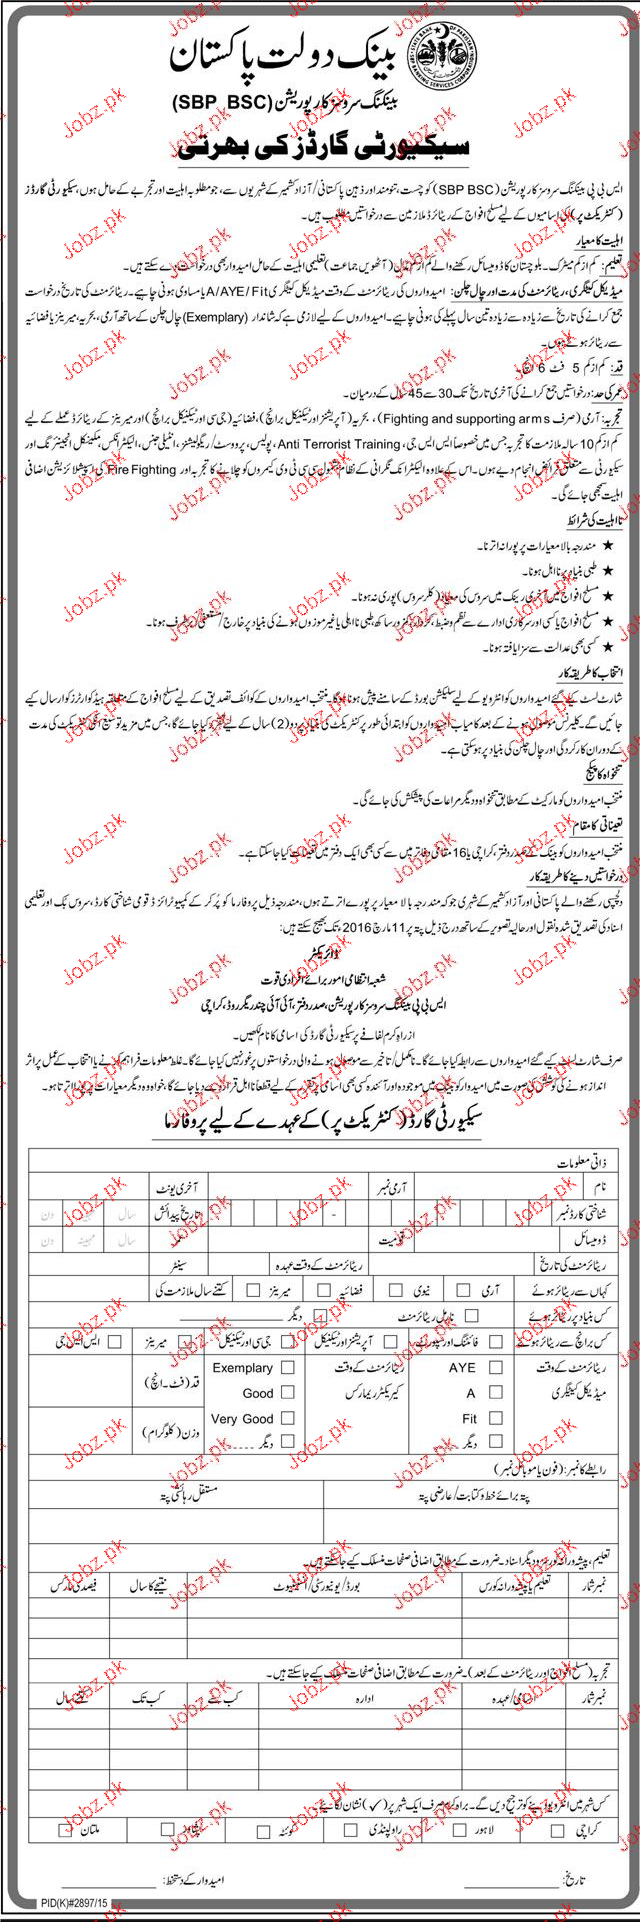 بینک دولت پاکستان
بینکنگ سروسز کارپوریشن (SBP BSC)
سیکیورٹی گارڈز کی بھرتی
ایس بی پی بینکنگ سروسز کارپوریشن (SBP BSC) کو چست، تنومند اور ذہین پاکستانی/آزاد کشمیر کے شہریوں سے، جو مطلوبہ اہلیت اور تجربے کے حامل ہوں، سیکیورٹی گارڈز
(کنٹریکٹ پر) کی اسامیوں کے لیے مسلح افواج کے ریٹائرڈ ملازمین سے درخواستیں مطلوب ہیں۔
اہلیت کا معیار
تعلیم: کم از کم میٹرک۔ بلوچستان کا ڈومیسائل رکھنے والے کم از کم مڈل (آٹھویں جماعت) تعلیمی اہلیت کے حامل امیدوار بھی درخواست دے سکتے ہیں۔
میڈیکل کیٹگری، ریٹائرمنٹ کی مدت اور چال چلن: امیدواروں کی ریٹائرمنٹ کے وقت میڈیکل کیٹگری A/AYE/Fit یا مساوی ہونی چاہیے۔ ریٹائرمنٹ کی تاریخ درخواست
جمع کرانے کی تاریخ سے زیادہ سے زیادہ تین سال پہلے کی ہونی چاہیے۔ امیدواروں کے لیے لازمی ہے کہ شاندار (Exemplary) چال چلن کے ساتھ آرمی، بحریہ، میرینز یا فضائیہ
سے ریٹائر ہوئے ہوں۔
قد: کم از کم 5 فٹ 6 انچ۔
عمر کی حد: درخواستیں جمع کرانے کی آخری تاریخ تک 30 سے 45 سال کے درمیان۔
تجربہ: آرمی (صرف Fighting and supporting arms)، بحریہ (آپریشنز اور ٹیکنیکل برانچ)، فضائیہ (جی سی اور ٹیکنیکل برانچ) اور میرینز کے ریٹائرڈ عملے کے لیے
کم از کم 10 سالہ ملازمت کا تجربہ جس میں خصوصاً ایس ایس جی، Anti Terrorist Training، پولیس، پرووسٹ/ریگولیشنز، انٹیلی جنس، الیکٹرانکس، مکینیکل انجینئرنگ اور
سیکیورٹی سے متعلق فرائض انجام دیے ہوں۔ اس کے علاوہ الیکٹرانک نگرانی کے نظام بشمول سی سی ٹی وی کیمروں کو چلانے کا تجربہ اور Fire Fighting کی اسپیشلائزیشن اضافی
اہلیت سمجھی جائے گی۔
نااہلیت کی شرائط
★ مندرجہ بالا معیارات پر پورا نہ اترنا۔
★ طبی بنیاد پر نااہل ہونا۔
★ مسلح افواج میں آخری رینک میں سروس کی معیاد (کلر سروس) پوری نہ ہونا۔
★ مسلح افواج یا کسی اور سرکاری ادارے سے نظم و ضبط، کردار، کمزور ساکھ، طبی نااہلی یا غیر موزوں ہونے کی بنیاد پر خارج/مستعفی/برطرف ہونا۔
★ کسی بھی عدالت سے سزا یافتہ ہونا۔
انتخاب کا طریقہ کار
شارٹ لسٹ کیے گئے امیدواروں کو انٹرویو کے لیے سلیکشن بورڈ کے سامنے پیش ہونا ہوگا۔ منتخب امیدواروں کے کوائف تصدیق کے لیے مسلح افواج کے متعلقہ ہیڈ کوارٹرز کو ارسال کیے
جائیں گے۔ کلیرنس موصول ہونے کے بعد کامیاب امیدواروں کو ابتدائی طور پر کنٹریکٹ کی بنیاد پر دو (2) سال کے لیے مقرر کیا جائے گا، جس میں مزید توسیع کنٹریکٹ کی مدت
کے دوران کارکردگی اور چال چلن کی بنیاد پر ہو سکتی ہے۔
تنخواہ کا پیکج
منتخب امیدواروں کو مارکیٹ کے مطابق تنخواہ و دیگر مراعات کی پیشکش کی جائے گی۔
تعیناتی کا مقام
منتخب امیدواروں کو بینک کے صدر دفتر، کراچی یا 16 مقامی دفاتر میں سے کسی بھی ایک دفتر میں تعینات کیا جا سکتا ہے۔
درخواستیں دینے کا طریقہ کار
دلچسپی رکھنے والے پاکستانی اور آزاد کشمیر کے شہری جو کہ مندرجہ بالا معیار پر پورے اترتے ہوں، مندرجہ ذیل پروفارما کو پُر کر کے کمپیوٹرائزڈ قومی شناختی کارڈ، سروس بک اور تعلیمی
اسناد کی تصدیق شدہ نقول اور حالیہ تصویر کے ساتھ درج ذیل پتہ پر 11 مارچ 2016ء تک بھیج سکتے ہیں:
ڈائریکٹر
شعبہ انتظامی امور برائے افرادی قوت
ایس بی پی بینکنگ سروسز کارپوریشن، صدر دفتر، آئی آئی چندریگر روڈ، کراچی
ازراہ کرم لفافے پر سیکیورٹی گارڈ کی اسامی کا نام لکھیں۔
صرف شارٹ لسٹ کیے گئے امیدواروں سے رابطہ کیا جائے گا۔ نامکمل/تاخیر سے موصول ہونے والی درخواستوں پر غور نہیں کیا جائے گا۔ غلط معلومات فراہم کرنے یا انتخاب کے عمل پر اثر
انداز ہونے کی کوشش کی صورت میں امیدوار کو بینک میں موجودہ اور آئندہ کسی بھی اسامی پر تقرر کے لیے قطعاً نااہل قرار دے دیا جائے گا، خواہ وہ دیگر معیارات پر پورا اترتا ہو۔
سیکیورٹی گارڈ (کنٹریکٹ پر) کے عہدے کے لیے پروفارما
ذاتی معلومات
نام آرمی نمبر آخری یونٹ
شناختی کارڈ نمبر - - تاریخ پیدائش سال مہینہ دن
ڈومیسائل قومیت عمر سال مہینہ دن
ریٹائرمنٹ کی تاریخ ریٹائرمنٹ کے وقت عہدہ سینٹر
کہاں سے ریٹائر ہوئے آرمی نیوی فضائیہ میرینز کتنے سال ملازمت کی
کس بنیاد پر ریٹائر ہوئے نارمل ریٹائرمنٹ دیگر
کس برانچ سے ریٹائر ہوئے فائٹنگ اور سپورٹ آپریشنز اور ٹیکنیکل جی سی اور ٹیکنیکل میرینز ایس ایس جی
ریٹائرمنٹ کے وقت میڈیکل کیٹگری AYE ریٹائرمنٹ کے وقت کیریکٹر ریمارکس Exemplary قد (فٹ۔انچ)
A Good
Fit Very Good وزن (کلوگرام)
دیگر دیگر
رابطے کا نمبر: (فون یا موبائل نمبر)
پتہ برائے خط و کتابت/عارضی پتہ مستقل رہائشی پتہ
تعلیم، پیشہ ورانہ کورس و دیگر اسناد۔ ضرورت کے مطابق اضافی صفحات منسلک کیے جا سکتے ہیں۔
نمبر شمار تعلیم یا پیشہ ورانہ کورس بورڈ/یونیورسٹی/انسٹیٹیوٹ نتیجے کا سال فیصدی مارکس
تجربہ (مسلح افواج اور ریٹائرمنٹ کے بعد)۔ ضرورت کے مطابق اضافی صفحات منسلک کیے جا سکتے ہیں۔
نمبر شمار اسامی/عہدہ ادارہ کب سے کب تک کتنے سال
کس شہر میں انٹرویو دینے کو ترجیح دیں گے۔ براہ کرم صرف ایک شہر پر (✓) نشان لگائیے۔
کراچی لاہور راولپنڈی کوئٹہ پشاور ملتان
تاریخ: امیدوار کے دستخط:
PID(K)#2897/15